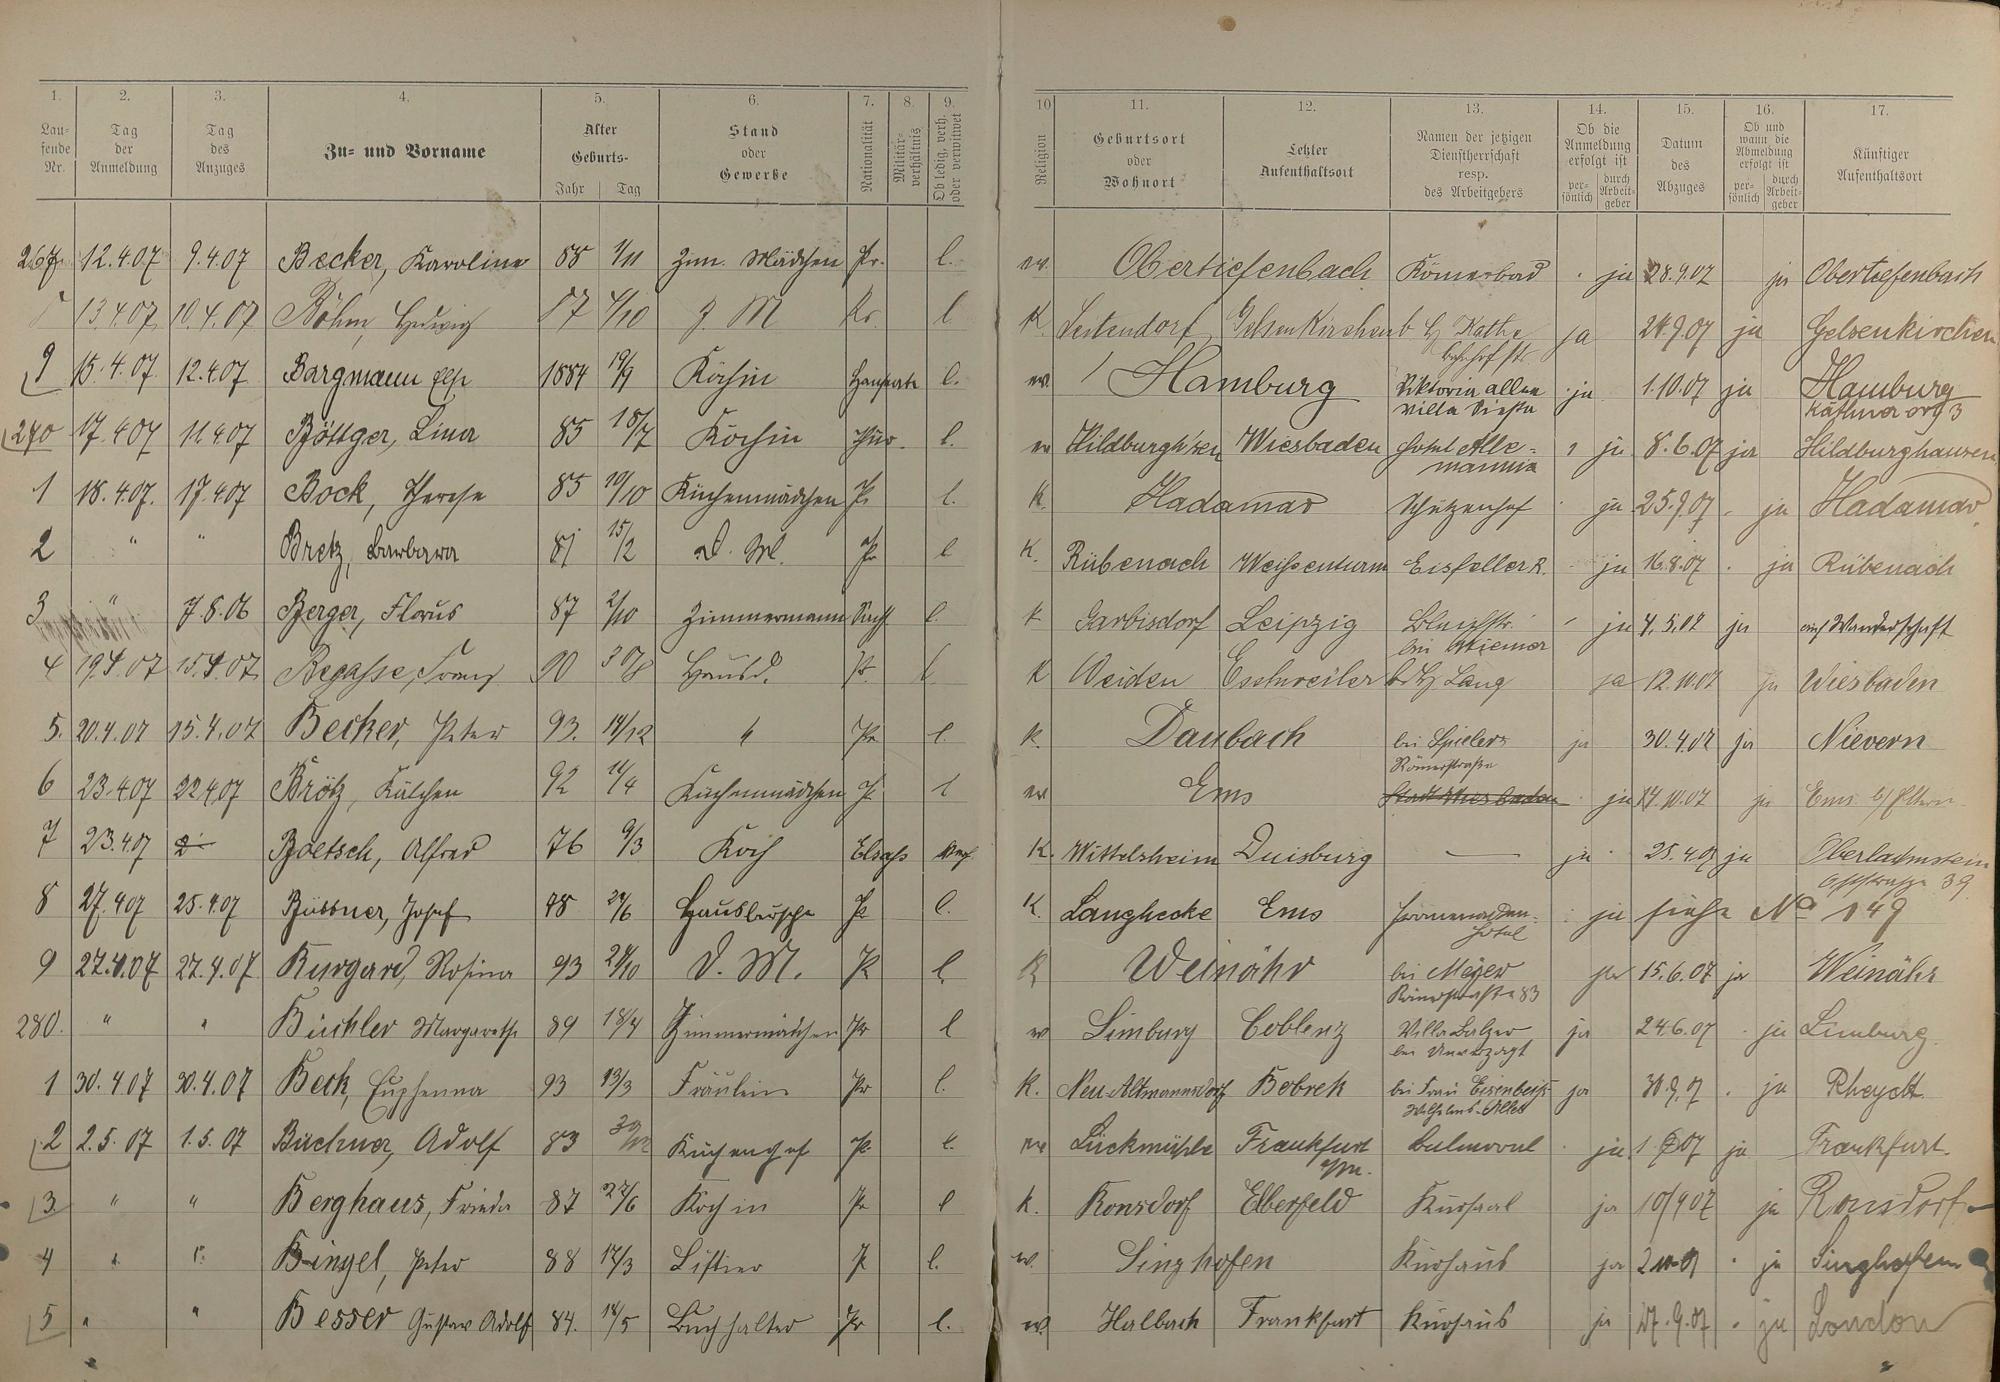 1. 2. 3. 4. 5. 6. 7. 8. 9. 10 11. 12. 13. 14. 15. 16. 17.
Lau-
fende
Nr.
Tag
der
Anmeldung
Tag
des
Anzuges
Zu- und Vorname
Alter
Geburts-
Jahr Tag
Stand
oder
Gewerbe
Nationalität
Militär-
verhältnis
Ob ledig, verh.
oder verwitwet
Religion
Geburtsort
oder
Wohnort
Letzter
Aufenthaltsort
Namen der jetzigen
Dienstherrschaft
resp.
des Arbeitgebers
Ob die
Anmeldung
erfolgt ist
per-
sönlich
durch
Arbeit-
geber
Datum
des
Abzuges
Ob und
wann die
Abmeldung
erfolgt ist
per-
sönlich
durch
Arbeit-
geber
Künftiger
Aufenthaltsort
267 12.4.07 9.4.07 Becker, Karoline 88 1/11 Zim. Mädchen Pr. l. ev. Obertiefenbach Römerbad ja 28.9.07 ja Obertiefenbach
13.4.07 10.4.07 Böhm, Hedwig 87 4/10 Z. M Pr. l K. Gelsenkirchen ja 24.9.07 ja Gelsenkirchen
9 15.4.07 12.4.07 Bargmann Else 1884 19/9 Köchin l. ev. Hamburg Viktoria allee ja 1.10.07 ja Hamburg
Villa
270 17.4.07 11.4.07 Böttger, Lina 85 18/7 Köchin l. ev Hildburgh'sen Wiesbaden Hotel Alle- ja 8.6.07 ja Hildburghausen
mannia
1 18.4.07. 17.4.07 Bock, Therese 85 19/10 Küchenmädchen Pr l. K. Hadamar Schützenhof ja 25.9.07 ja Hadamar
2 " " Bretz, Barbara 81 15/2 D. M. Pr l K. Rübenach Weißenturm Eisfeller R. ja 16.8.07 ja Rübenach
3 " 7.8.06 Berger, Florus 87 2/10 Zimmermann Sachs l. k Garbisdorf Leipzig ja 4.5.07 ja auf Wanderschaft
bei
4 19.4.07 15.4.07 Franz 90 30/8 Hausd. Pr. l. K Weiden Eschweiler b. H Lang ja 12.10.07 ja Wiesbaden
5. 20.4.07 15.4.07 Becker, Peter 93. 14/12 " Pr l. K. Daubach bei Spielers ja 30.4.07 ja Nievern
Römerstraße
6 23.4.07 22.4.07 Brötz, Kälchen 92 14/4 Küchenmädchen P l ev Ems Stadt Wiesbaden ja 14.10.07 ja Ems b/ Eltern
7 23.4.07 Boetsch, Alfred 76 9/3 Koch Elsaß K. Wittelsheim Duisburg — ja 25.4.07 ja Oberlahnstein
39
8 27.4.07 25.4.07 Büssner, Josef 88 24/6 Hausbursche Pr l. K. Langhecke Ems Promenaden- ja siehe No 149
Hotel
9 27.4.07 27.4.07 Burgard, Rosina 93 24/10 D. M. Pr l. K Weinähr bei Meyer ja 15.6.07 ja Weinähr
Römerstraße 83
280. " " Büchler Margarethe 89 18/4 Zimmermädchen Pr l ev Limburg Coblenz Villa Balzer ja 24.6.07 ja Limburg
bei Unverzagt
1 30.4.07 30.4.07 Beck, Euphemia 93 13/3 Fräulein Pr l. K. Neu-Altmannsdorf Bobrek bei Frau Eisenbeiß ja 30.9.07 ja Rheydt
Wilhelms-Allee
2 2.5.07 1.5.07 Büchner, Adolf 83 Küchenchef Pr l. ev Lückmühle Frankfurt ja 1 07 ja Frankfurt.
a/M.
3. " " Berghaus, Frieda 87 27/6 Köchin Pr l k. Ronsdorf Elberfeld Kursaal ja 10/9 07 ja Ronsdorf
4 " " Bingel, Peter 88 12/3 Liftier P l. ev. Singhofen Kurhaus ja ja Singhofen
5 " " Besser Gustav Adolf 84. 18/5 Buchhalter Pr l. ev. Halbach Frankfurt Kurhaus ja 27.9.07 ja London